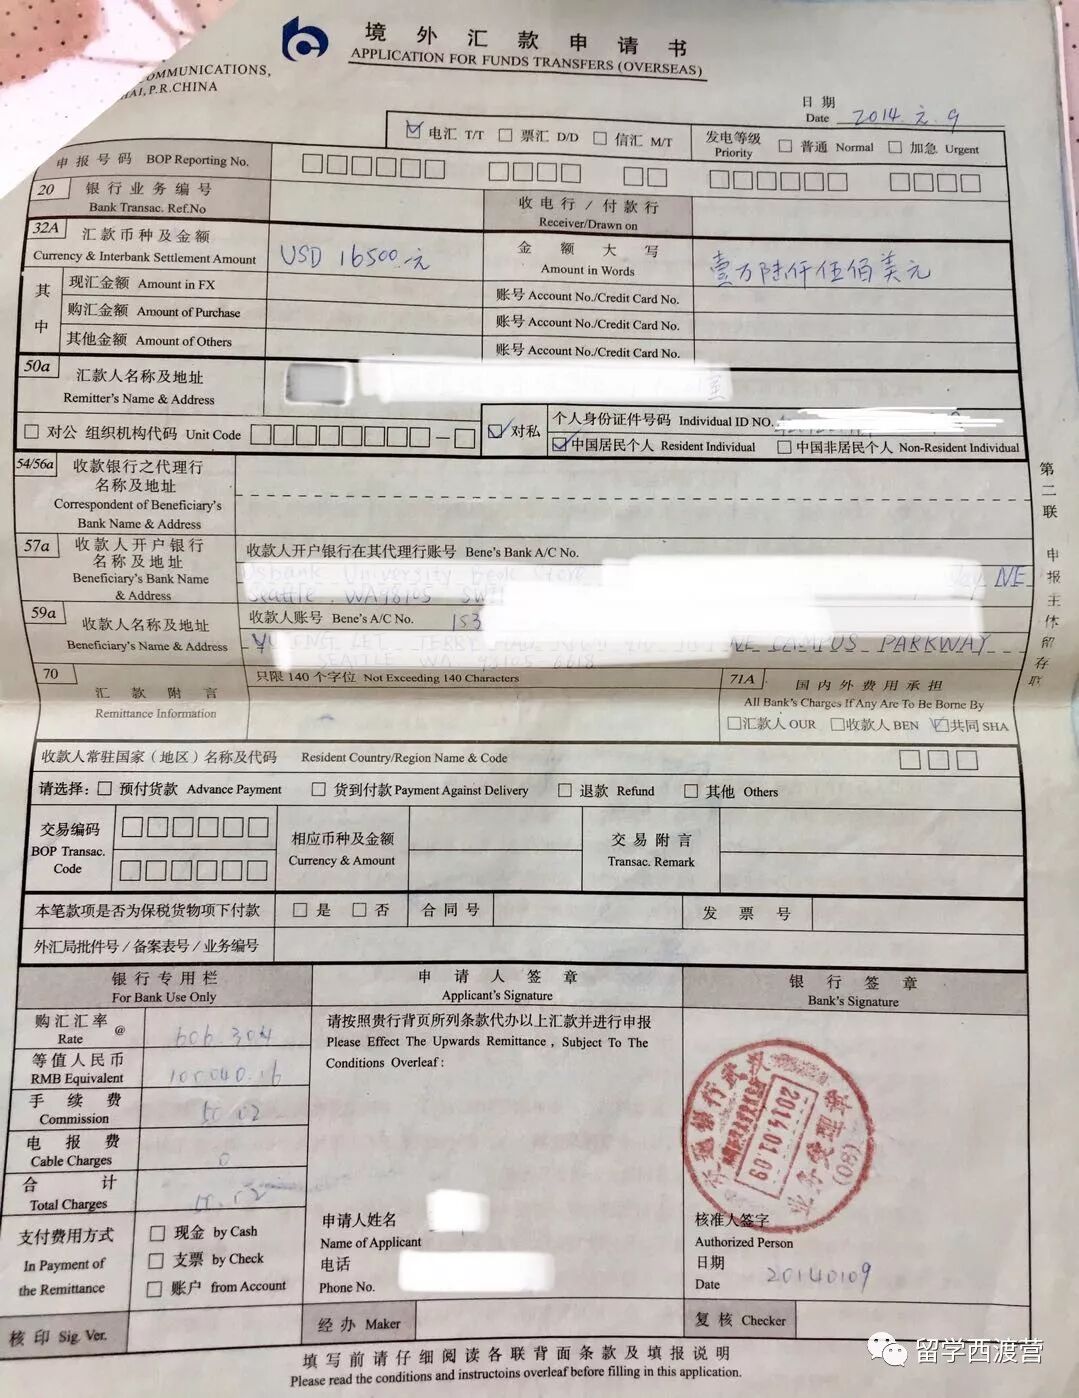 境外汇款申请书
APPLICATION FOR FUNDS TRANSFERS (OVERSEAS)
COMMUNICATIONS,
HAI, P.R.CHINA
日期
Date 2014.元.9
电汇 T/T 票汇 D/D 信汇 M/T 发电等级 Priority 普通 Normal 加急 Urgent
申报号码 BOP Reporting No.
20 银行业务编号
Bank Transac. Ref.No
收电行/付款行
Receiver/Drawn on
32A 汇款币种及金额
Currency & Interbank Settlement Amount
USD 16500.元
金额大写
Amount in Words
壹万陆仟伍佰美元
其中
现汇金额 Amount in FX
账号 Account No./Credit Card No.
购汇金额 Amount of Purchase
账号 Account No./Credit Card No.
其他金额 Amount of Others
账号 Account No./Credit Card No.
50a 汇款人名称及地址
Remitter's Name & Address
对公 组织机构代码 Unit Code
对私
个人身份证件号码 Individual ID NO.
中国居民个人 Resident Individual 中国非居民个人 Non-Resident Individual
54/56a 收款银行之代理行
名称及地址
Correspondent of Beneficiary's
Bank Name & Address
57a 收款人开户银行
名称及地址
Beneficiary's Bank Name
& Address
收款人开户银行在其代理行账号 Bene's Bank A/C No.
Usbank University Book Store
NE
Seattle, WA98105
59a 收款人名称及地址
Beneficiary's Name & Address
收款人账号 Bene's A/C No. 153
NE CAMPUS PARKWAY
SEATTLE WA
70 汇款附言
Remittance Information
只限140个字位 Not Exceeding 140 Characters
71A 国内外费用承担
All Bank's Charges If Any Are To Be Borne By
汇款人 OUR 收款人 BEN 共同 SHA
第二联 申报主体留存联
收款人常驻国家(地区)名称及代码 Resident Country/Region Name & Code
请选择: 预付货款 Advance Payment 货到付款 Payment Against Delivery 退款 Refund 其他 Others
交易编码
BOP Transac.
Code
相应币种及金额
Currency & Amount
交易附言
Transac. Remark
本笔款项是否为保税货物项下付款 是 否 合同号 发票号
外汇局批件号/备案表号/业务编号
银行专用栏
For Bank Use Only
申请人签章
Applicant's Signature
银行签章
Bank's Signature
购汇汇率 @
Rate
606.304
等值人民币
RMB Equivalent
100040.16
手续费
Commission
50.02
电报费
Cable Charges
0
合计
Total Charges
支付费用方式
In Payment of
the Remittance
现金 by Cash
支票 by Check
账户 from Account
核印 Sig. Ver.
请按照贵行背页所列条款代办以上汇款并进行申报
Please Effect The Upwards Remittance, Subject To The
Conditions Overleaf:
申请人姓名
Name of Applicant
电话
Phone No.
2014.01.09
业务受理章
(08)
核准人签字
Authorized Person
日期
Date 20140109
经办 Maker
复核 Checker
填写前请仔细阅读各联背面条款及填报说明
Please read the conditions and instructoins overleaf before filling in this application.
留学西渡营